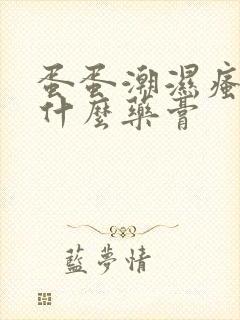 蛋蛋潮濕瘙
什麼藥膏
藍夢情